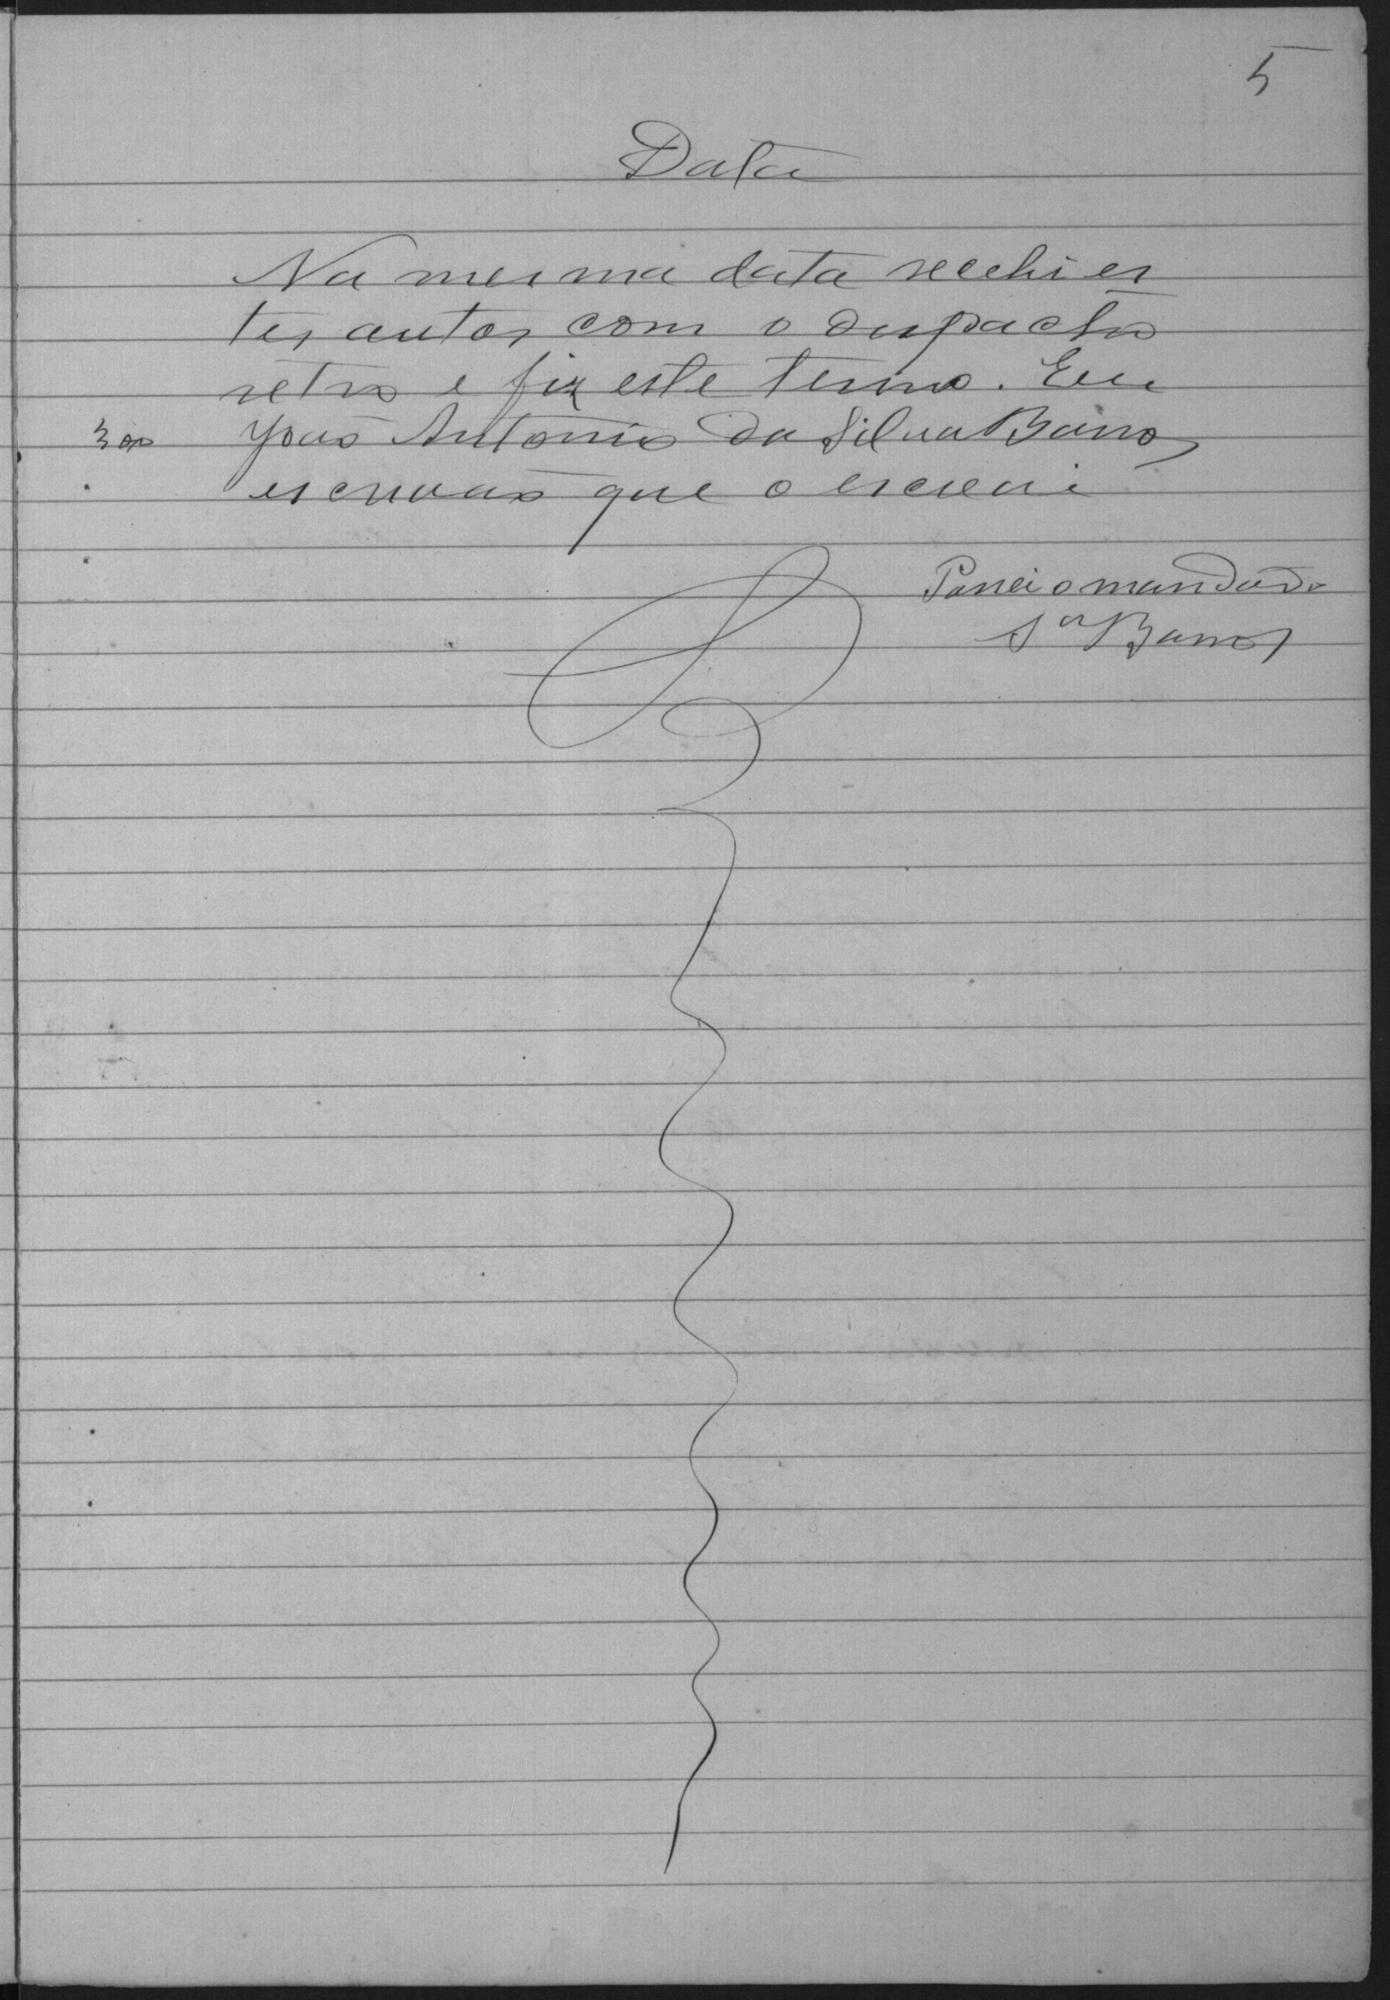 5
Data
Na mesma data recebi es
tes autos com o despacho
retro e fiz este termo. Eu
300 João Antonio da Silva Barros
escrivão que o escrevi
Passei o mandado
Sª Barros